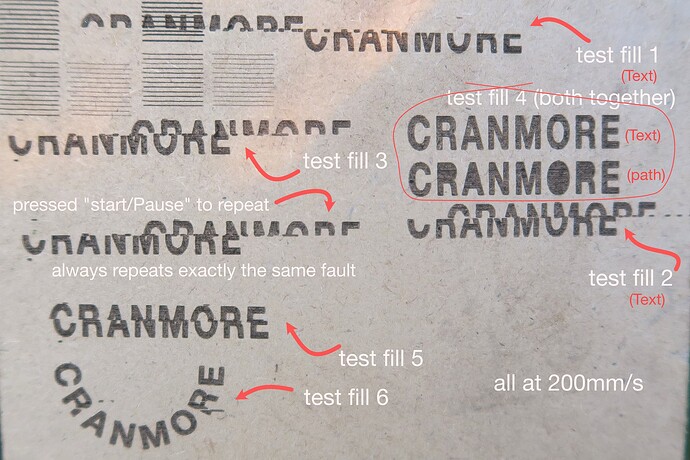 CRANMORE
CRANMORE
test fill 1
(Text)
test fill 4 (both together)
CRANMORE (Text)
CRANMORE (path)
CRANMORE
CRANMORE
test fill 3
pressed "start/Pause" to repeat
CRANMORE
CRANMORE
CRANMORE
CRANMORE
always repeats exactly the same fault
test fill 2
(Text)
CRANMORE
test fill 5
CRANMORE
test fill 6
all at 200mm/s